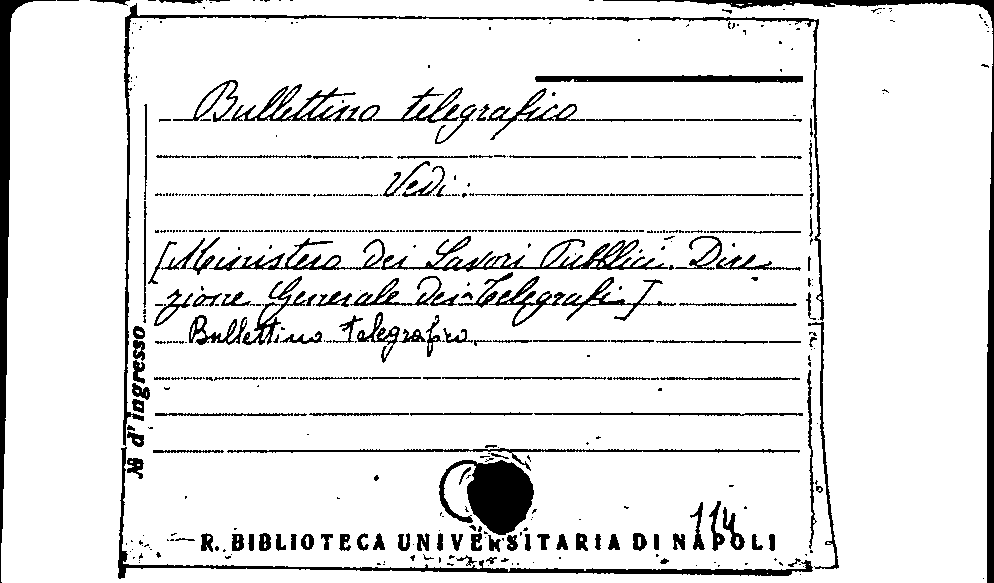 Bullettino telegrafico
Vedi:
[Ministero dei Lavori Pubblici. Dire
zione Generale dei Telegrafi].
Bullettino telegrafico.
№ d'ingresso
114
R. BIBLIOTECA UNIVERSITARIA DI NAPOLI